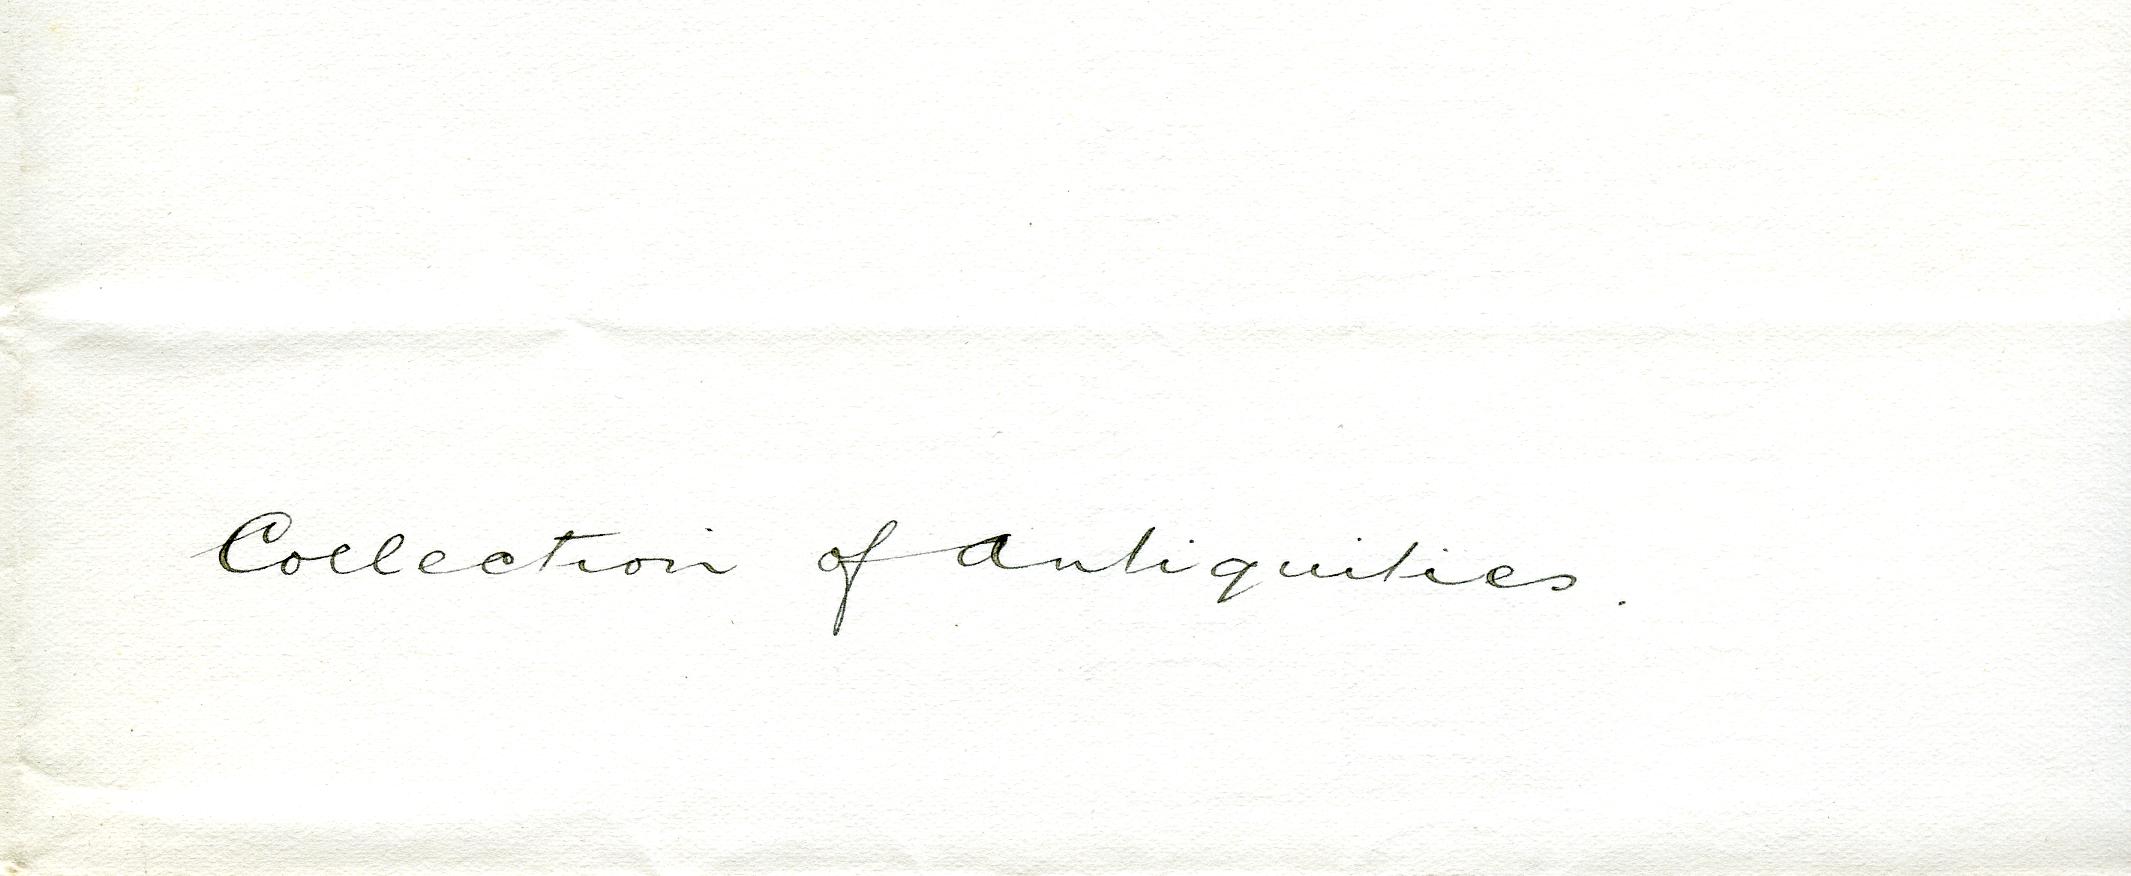 Collection of Antiquities.